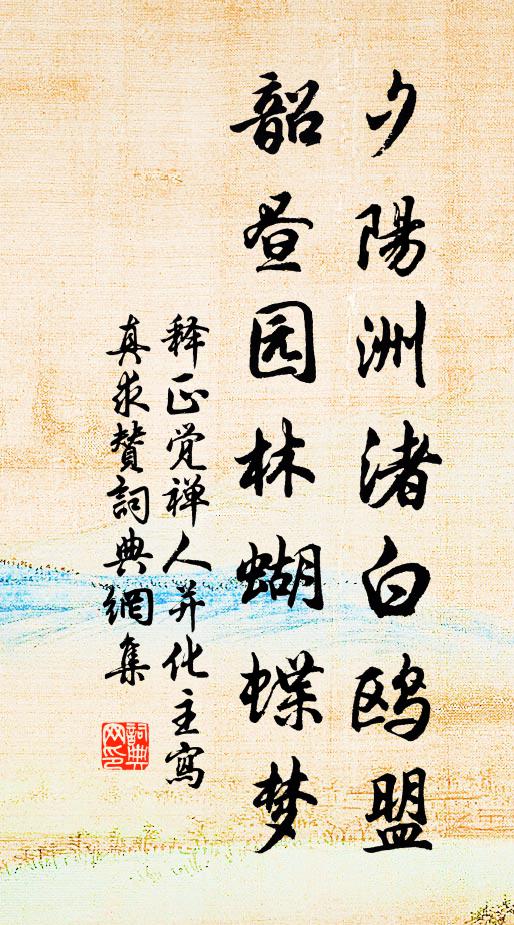 夕陽洲渚白鸥盟
韶昼园林蝴蝶梦
释正觉禅人并化主寫
真求贊詞典網集
詞典网印